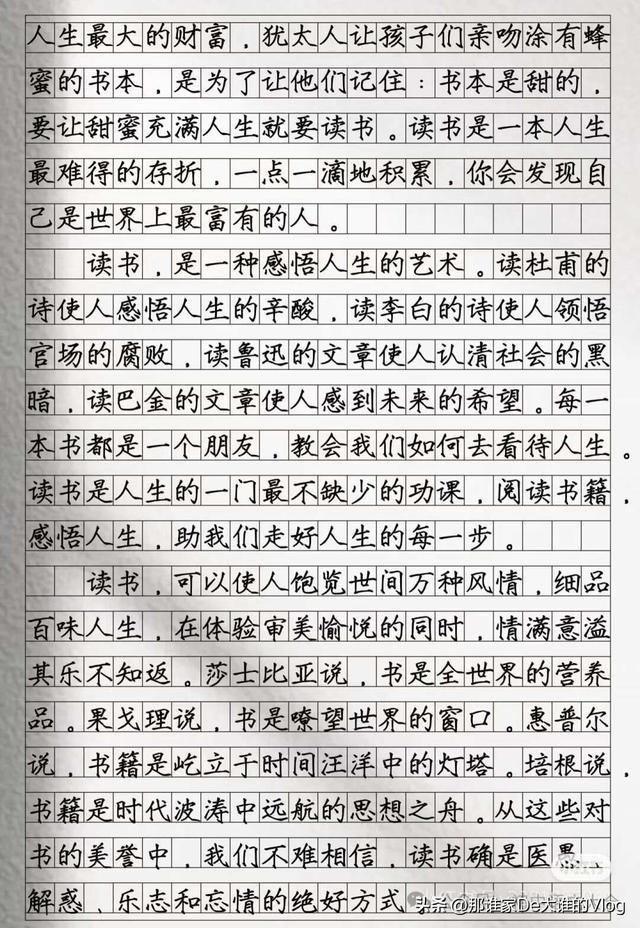 人生最大的财富，犹太人让孩子们亲吻涂有蜂
蜜的书本，是为了让他们记住：书本是甜的，
要让甜蜜充满人生就要读书。读书是一本人生
最难得的存折，一点一滴地积累，你会发现自
己是世界上最富有的人。
读书，是一种感悟人生的艺术。读杜甫的
诗使人感悟人生的辛酸，读李白的诗使人领悟
官场的腐败，读鲁迅的文章使人认清社会的黑
暗，读巴金的文章使人感到未来的希望。每一
本书都是一个朋友，教会我们如何去看待人生。
读书是人生的一门最不缺少的功课，阅读书籍，
感悟人生，助我们走好人生的每一步。
读书，可以使人饱览世间万种风情，细品
百味人生，在体验审美愉悦的同时，情满意溢
其乐不知返。莎士比亚说，书是全世界的营养
品。果戈理说，书是嘹望世界的窗口。惠普尔
说，书籍是屹立于时间汪洋中的灯塔。培根说，
书籍是时代波涛中远航的思想之舟。从这些对
书的美誉中，我们不难相信，读书确是医愚、
解惑、乐志和忘情的绝好方式
头条 @那谁家De大谁的Vlog